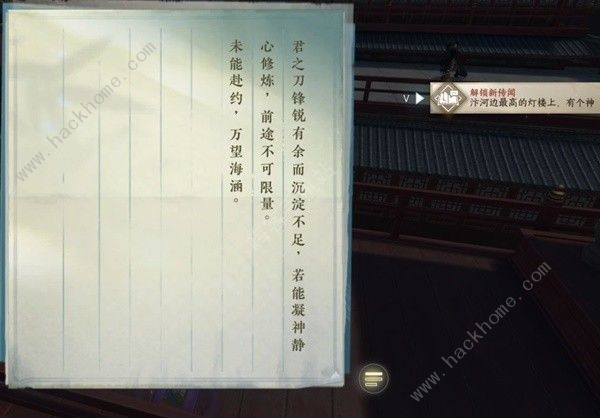 君之刀锋锐有余而沉淀不足，若能凝神静
心修炼，前途不可限量。
未能赴约，万望海涵。
V
解锁新传闻
汴河边最高的灯楼上，有个神
www.hackhome.com
www.hackhome.com
www.hackhome.com
www.hackhome.com